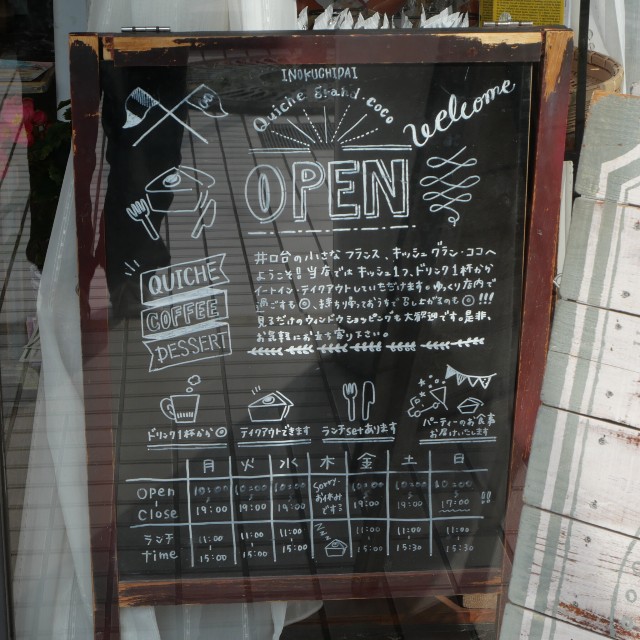 INOKUCHIDAI
Quiche Grand coco
welcome
OPEN
井口台の小さなフランス、キッシュグラン・ココへ
ようこそ!!当店ではキッシュ1つ、ドリンク1杯から
イートイン、テイクアウトしていただけます。ゆっくり店内で
過ごすも◎、持ち帰っておうちで楽しみが広がるも◎!!!
見るだけのウィンドウショッピングも大歓迎です。是非、
お気軽にお立ち寄り下さい。
QUICHE
COFFEE
DESSERT
ドリンク1杯から◎
テイクアウトできます
ランチsetあります
パーティーのお食事
お届けいたします
月 火 水 木 金 土 日
open 10:00 10:00 10:00 sorry お休みです 10:00 10:00 10:00
close 19:00 19:00 19:00 19:00 19:00 17:00 !!
ランチ 11:00 11:00 11:00 zzz 11:00 11:00 11:00
time 15:00 15:00 15:00 15:00 15:30 15:30